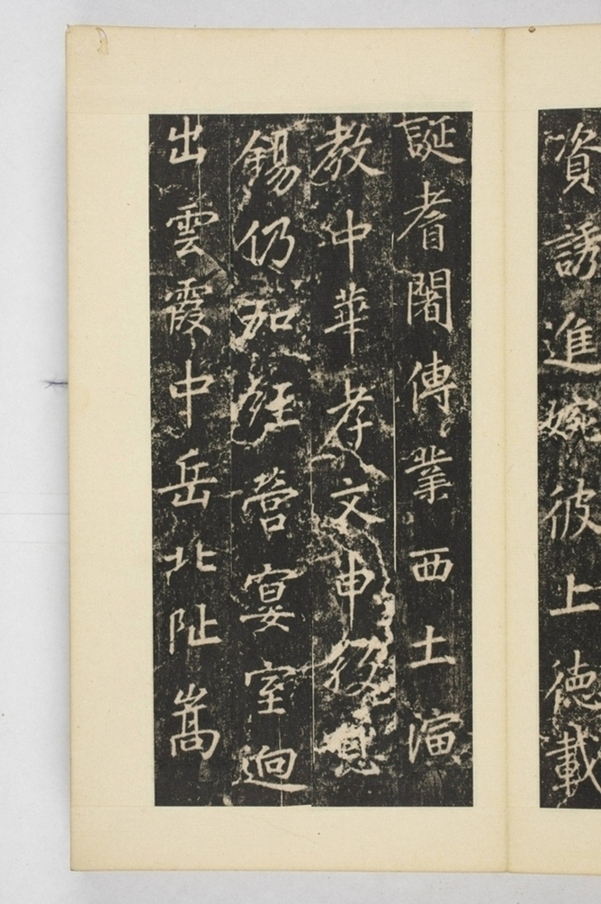 資誘進婉彼上德載
誕耆闍傳業西土湎
教中華孝文申役恩
錫仍加經營宴室迥
出雲霞中岳北阯嵩